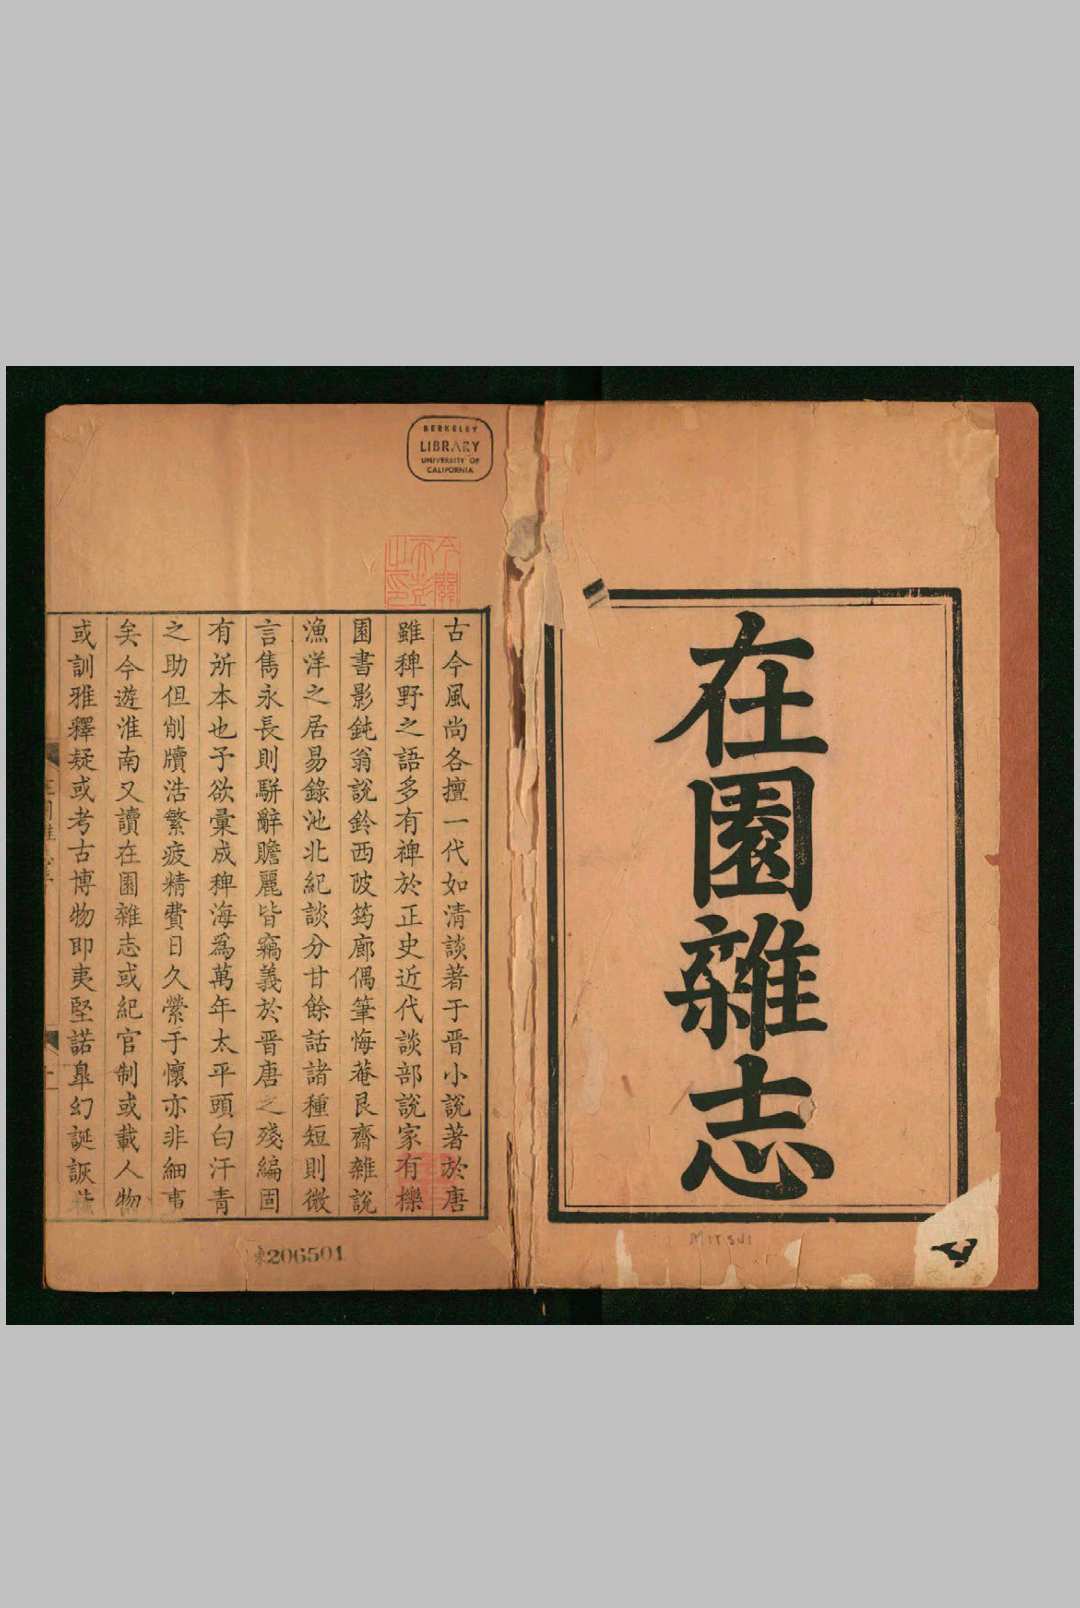 在園雜志
MITSUI
BERKELEY
LIBRARY
UNIVERSITY OF
CALIFORNIA
古今風尚各擅一代如清談著于晋小說著於唐
雖稗野之語多有裨於正史近代談部說家有櫟
園書影鈍翁說鈴西陂筠廊偶筆悔菴艮齋雜說
漁洋之居易錄池北紀談分甘餘話諸種短則微
言雋永長則駢辭贍麗皆竊義於晋唐之殘編固
有所本也予欲彙成稗海爲萬年太平頭白汗青
之助但削牘浩繁疲精費日久縈于懷亦非細事
矣今遊淮南又讀在園雜志或紀官制或載人物
或訓雅釋疑或考古博物即夷堅諾臯幻誕詼
206501